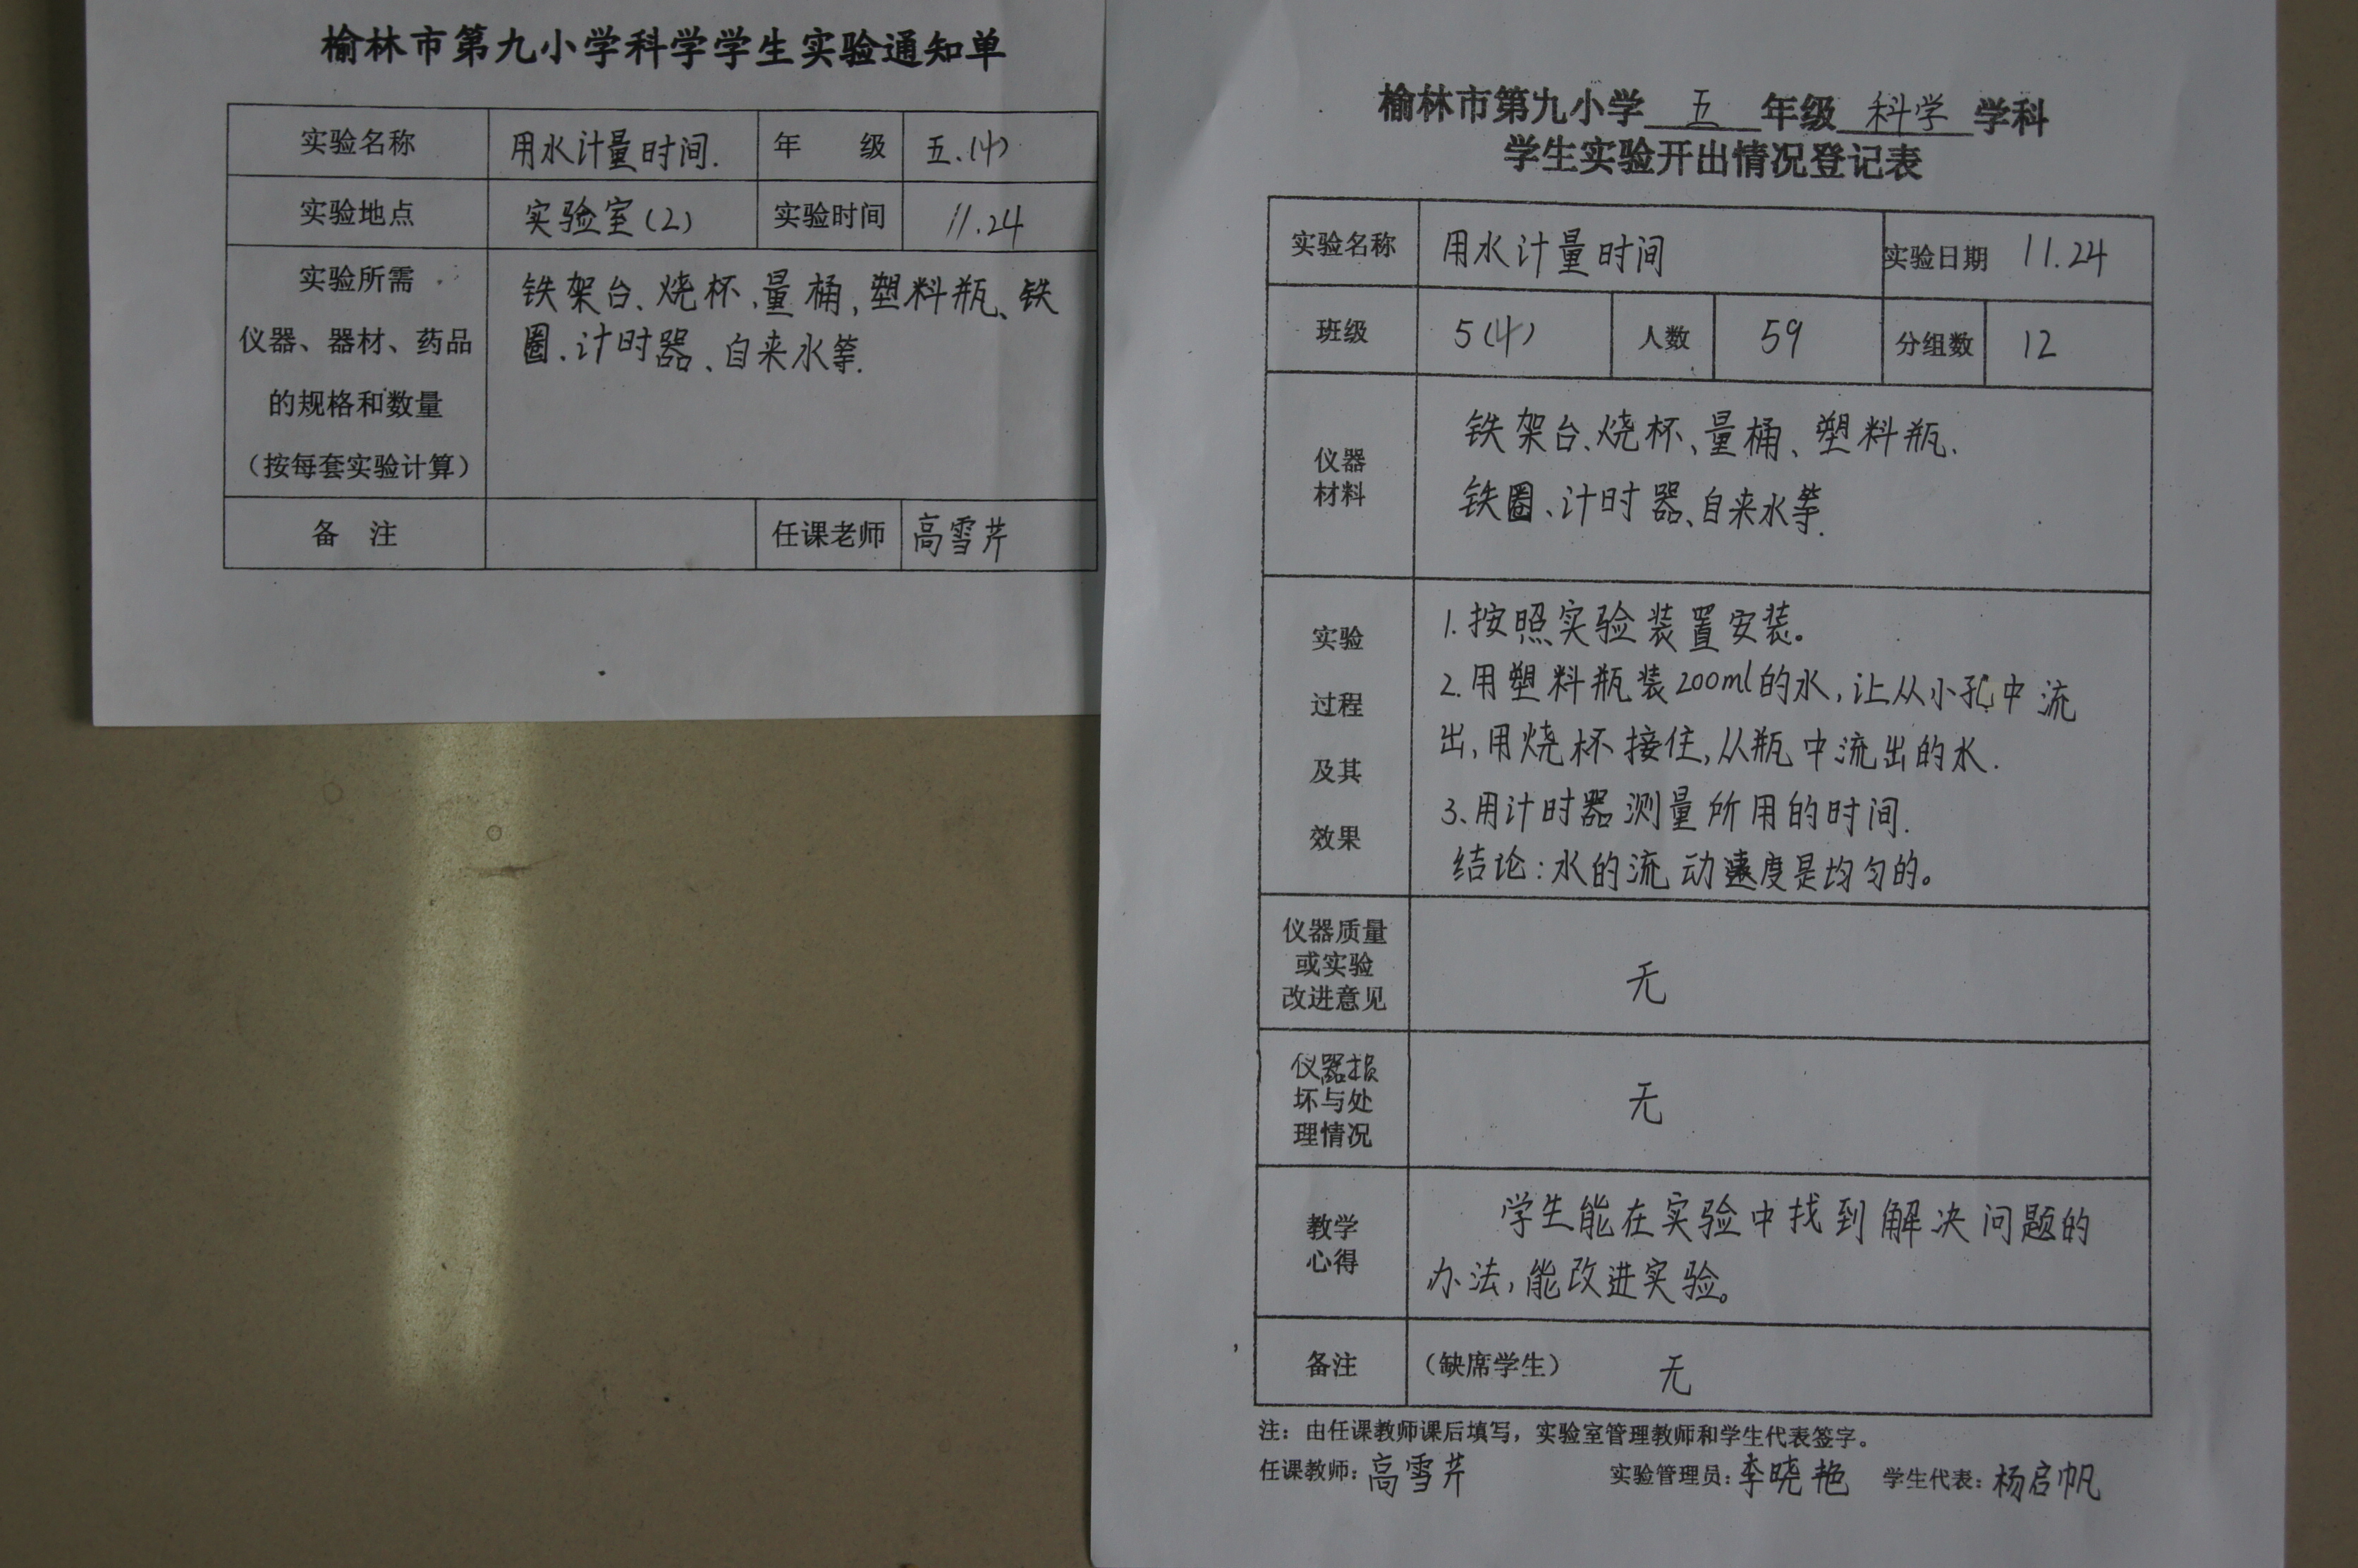 榆林市第九小学科学学生实验通知单
实验名称 用水计量时间. 年 级 五.(4)
实验地点 实验室(2) 实验时间 11.24
实验所需
仪器、器材、药品
的规格和数量
（按每套实验计算）
铁架台、烧杯、量桶,塑料瓶、铁
圈、计时器、自来水等.
备 注 任课老师 高雪芹
榆林市第九小学 五 年级 科学 学科
学生实验开出情况登记表
实验名称 用水计量时间 实验日期 11.24
班级 5(4) 人数 59 分组数 12
仪器
材料
铁架台、烧杯、量桶、塑料瓶、
铁圈、计时器、自来水等.
实验
过程
及其
效果
1.按照实验装置安装。
2.用塑料瓶装200ml的水,让从小孔中流
出,用烧杯接住,从瓶中流出的水.
3、用计时器测量所用的时间.
结论:水的流动速度是均匀的。
仪器质量
或实验
改进意见
无
仪器损
坏与处
理情况
无
教学
心得
学生能在实验中找到解决问题的
办法,能改进实验。
备注 （缺席学生） 无
注：由任课教师课后填写，实验室管理教师和学生代表签字。
任课教师：高雪芹 实验管理员：李晓艳 学生代表：杨启帆